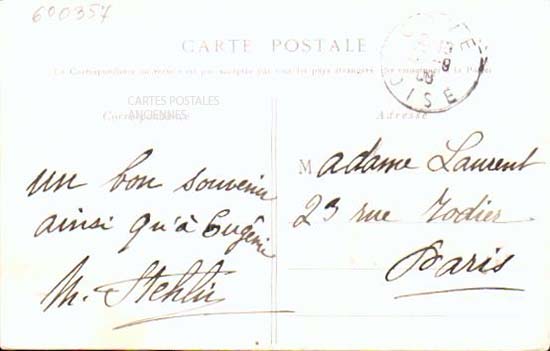 600357
CARTE POSTALE
La Correspondance au recto n'est pas acceptée par tous les pays étrangers
CARTES POSTALES
ANCIENNES
Correspondance
Adresse
OISE
un bon souvenir
ainsi qu'à Eugénie
M. Stehlin
Madame Laurent
23 rue Rodier
Paris